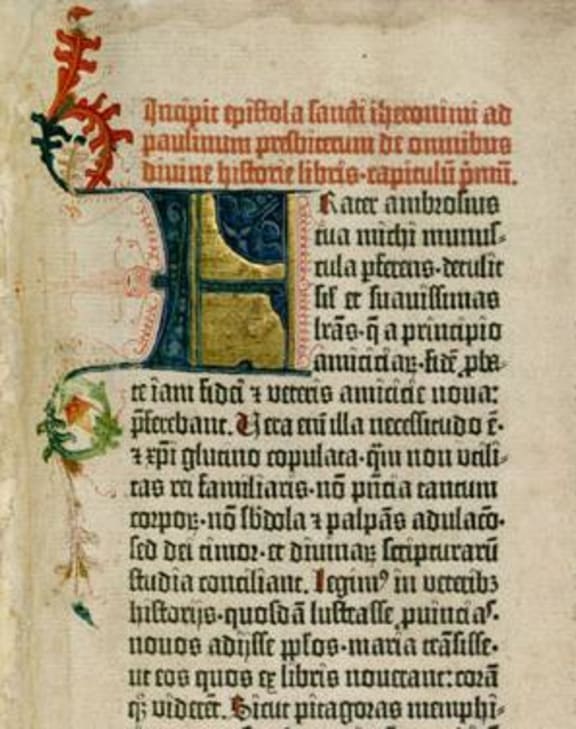 Incipit epistola sancti iheronimi ad
paulinum presbiterum de omnibus
divine historie libris·capitulū pͥmū.
FRater ambrosius
tua michi munus-
cula pferens·detulit
sil̄ et suavissimas
lr̄as·q̄ a principio
amiciciaꝝ·fidē ꝓba-
te iam fidei ⁊ veteris amicicie nova:
p̄ferebant. Uera eni̅ illa necessitudo ē·
⁊ xp̄i glutino copulata·qm̄ non utili-
tas rei familiaris·nō pn̄cia tantum
corpoꝝ·nō sb̄dola ⁊ palpās adulaco̅·
sed dei timor·et divinaꝝ scripturarū
studia conciliant. Legimꝰ in veteribꝫ
historijs·quosdā lustrasse ꝓvincias·
novos adijsse pp̄los·maria trāsisse·
ut eos quos ex libris noverant: corā
qꝫ viderēt. Sicut pitagoras memphi-